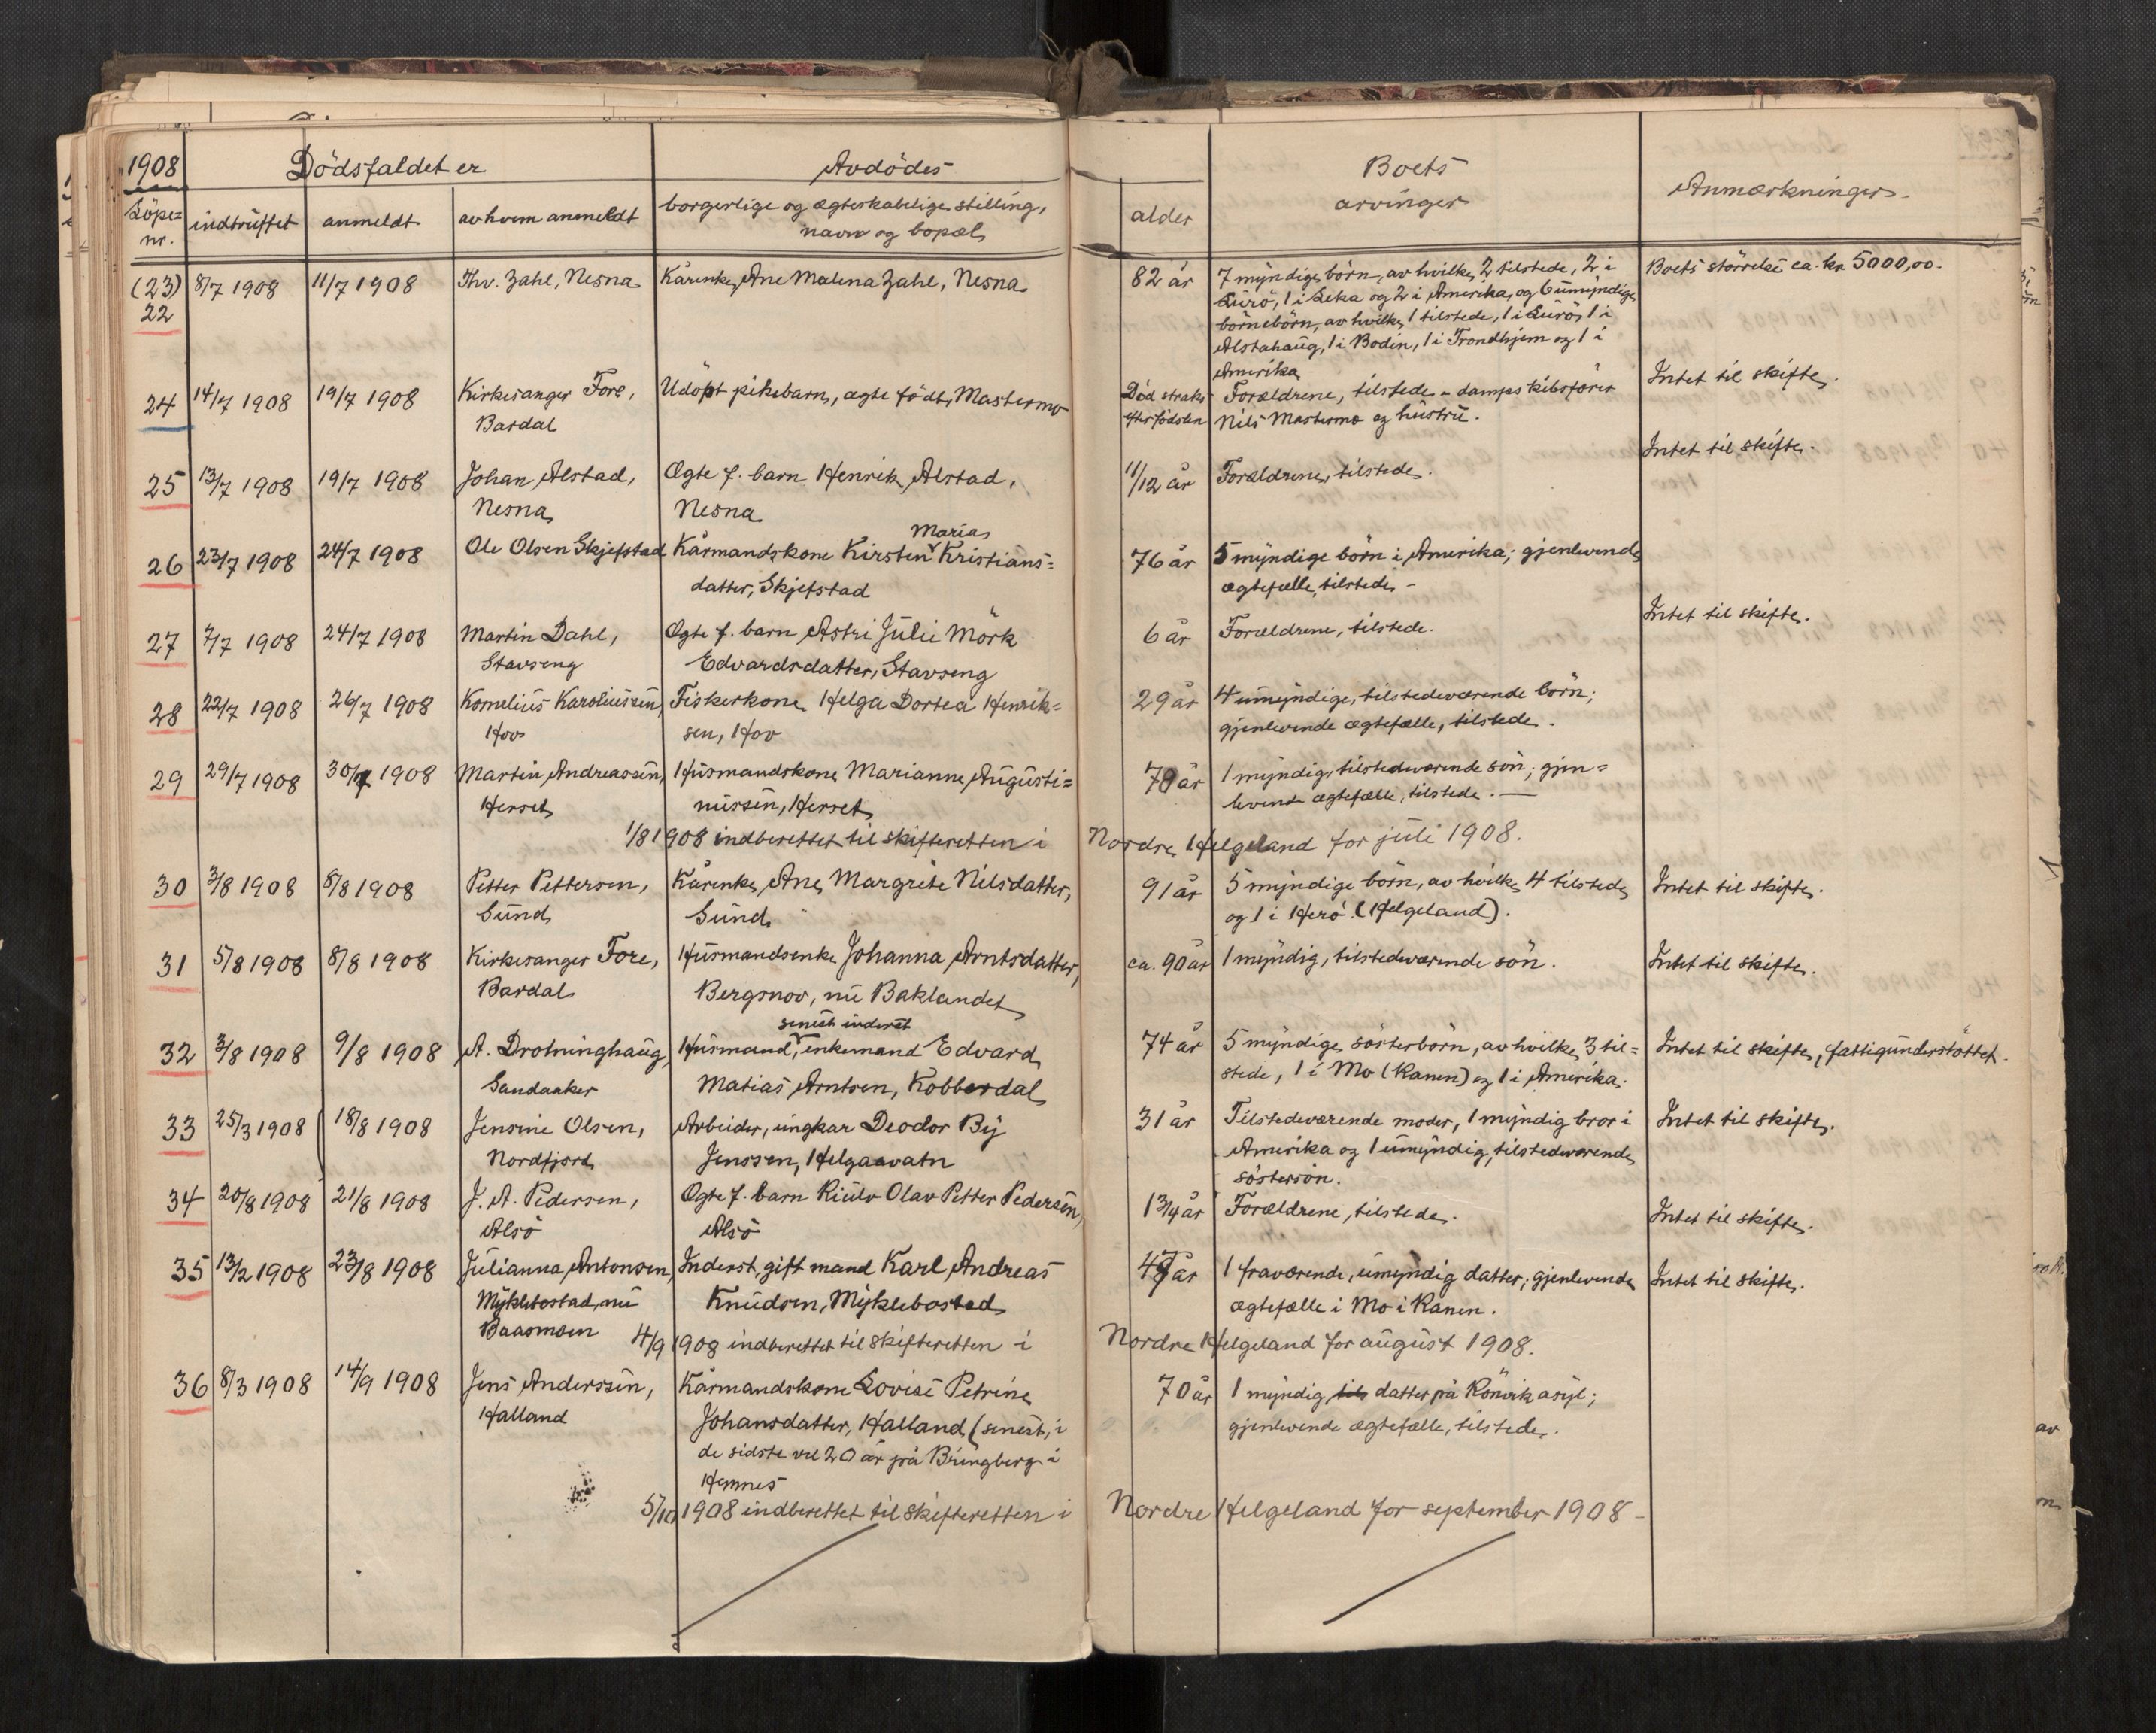 1908
Dödsfaldet er
Avdödes
Boets
Löpe=
nr.
indtruffet
anmeldt
av hvem anmeldt
borgerlige og ægteskabelige stilling,
navn og bopæl
alder
arvinger
Anmærkninger.
(23)
22
8/7 1908
11/7 1908
Thv. Zahl, Nesna
Kårenke Ane Malena Zahl, Nesna
82 år
7 myndige börn, av hvilke 2 tilstede, 2 i
Lurö, 1 i Leka og 2 i Amerika, og 6 umyndige
börnebörn, av hvilke 1 tilstede, 1 i Lurö, 1 i
Alstahaug, 1 i Bodin, 1 i Trondhjem og 1 i
Amerika
Boets störrelse ca. kr. 5000,00.
24
14/7 1908
19/7 1908
Kirkesanger Fore,
Bardal
Udöpt pikebarn, ægte födt, Mastermo
Död straks
efter födslen
Forældrene, tilstede - dampskibsförer
Nils Mastermo og hustru.
Intet til skifte.
25
13/7 1908
19/7 1908
Johan Alstad,
Nesna
Ægte f. barn Henrik Alstad,
Nesna
11/12 år
Forældrene, tilstede.
Intet til skifte.
26
23/7 1908
24/7 1908
Ole Olsen Skjefstad
Maria
Kårmandskone Kirsten Kristians=
datter, Skjefstad
76 år
5 myndige börn i Amerika; gjenlevende
ægtefælle, tilstede -
27
7/7 1908
24/7 1908
Martin Dahl,
Stavseng
Ægte f. barn Astri Julie Mörk
Edvardsdatter, Stavseng
6 år
Forældrene, tilstede.
Intet til skifte.
28
22/7 1908
26/7 1908
Kornelius Karoliussen,
Hov
Fiskerkone Helga Dortea Henrik=
sen, Hov
29 år
4 umyndige, tilstedeværende börn;
gjenlevende ægtefælle, tilstede.
29
29/7 1908
30/7 1908
Martin Andreassen,
Herset
Husmandskone Marianne Augusti=
nussen, Herset
79 år
1 myndig, tilstedeværende sön; gjen=
levende ægtefælle, tilstede. —
1/8 1908 indberettet til skifteretten i Nordre Helgeland for juli 1908.
30
3/8 1908
8/8 1908
Petter Pettersen,
Sund
Kårenke, Ane Margrete Nilsdatter,
Sund
91 år
5 myndige börn, av hvilke 4 tilstede
og 1 i Herö (Helgeland).
Intet til skifte.
31
5/8 1908
8/8 1908
Kirkesanger Fore,
Bardal
Husmandsenke Johanna Arntsdatter,
Bergsnov, nu Baklandet
ca. 90 år
1 myndig, tilstedeværende sön.
Intet til skifte.
32
3/8 1908
9/8 1908
A. Drotninghaug,
Sandaaker
senest inderst
Husmand, enkemand Edvard
Matias Arntsen, Kobberdal
74 år
5 myndige sösterbörn, av hvilke 3 til=
stede, 1 i Mo (Ranen) og 1 i Amerika.
Intet til skifte, fattigunderstöttet.
33
25/3 1908
18/8 1908
Jensine Olsen,
Nordfjord
Arbeider, ungkar Deodor By
Jenssen, Helgaavatn
31 år
Tilstedeværende moder, 1 myndig bror i
Amerika og 1 umyndig, tilstedeværende
söstersön.
Intet til skifte.
34
20/8 1908
21/8 1908
J. A. Pedersen,
Alsö
Ægte f. barn Riulv Olav Petter Pedersen,
Alsö
1 3/4 år
Forældrene, tilstede.
Intet til skifte.
35
13/2 1908
23/8 1908
Julianna Antonsen,
Myklebostad, nu
Baasmoen
Inderst, gift mand Karl Andreas
Knudsen, Myklebostad
47 år
1 fraværende, umyndig datter; gjenlevende
ægtefælle i Mo i Ranen.
Intet til skifte.
4/9 1908 indberettet til skifteretten i Nordre Helgeland for august 1908.
36
8/3 1908
14/9 1908
Jens Anderssen,
Halland
Kårmandskone Lovise Petrine
Johansdatter, Halland (senest, i
de sidste vel 20 år på Bringberg i
Hemnes
70 år
1 myndig tils datter på Rönvik asyl;
gjenlevende ægtefælle, tilstede.
5/10 1908 indberettet til skifteretten i Nordre Helgeland for september 1908 -